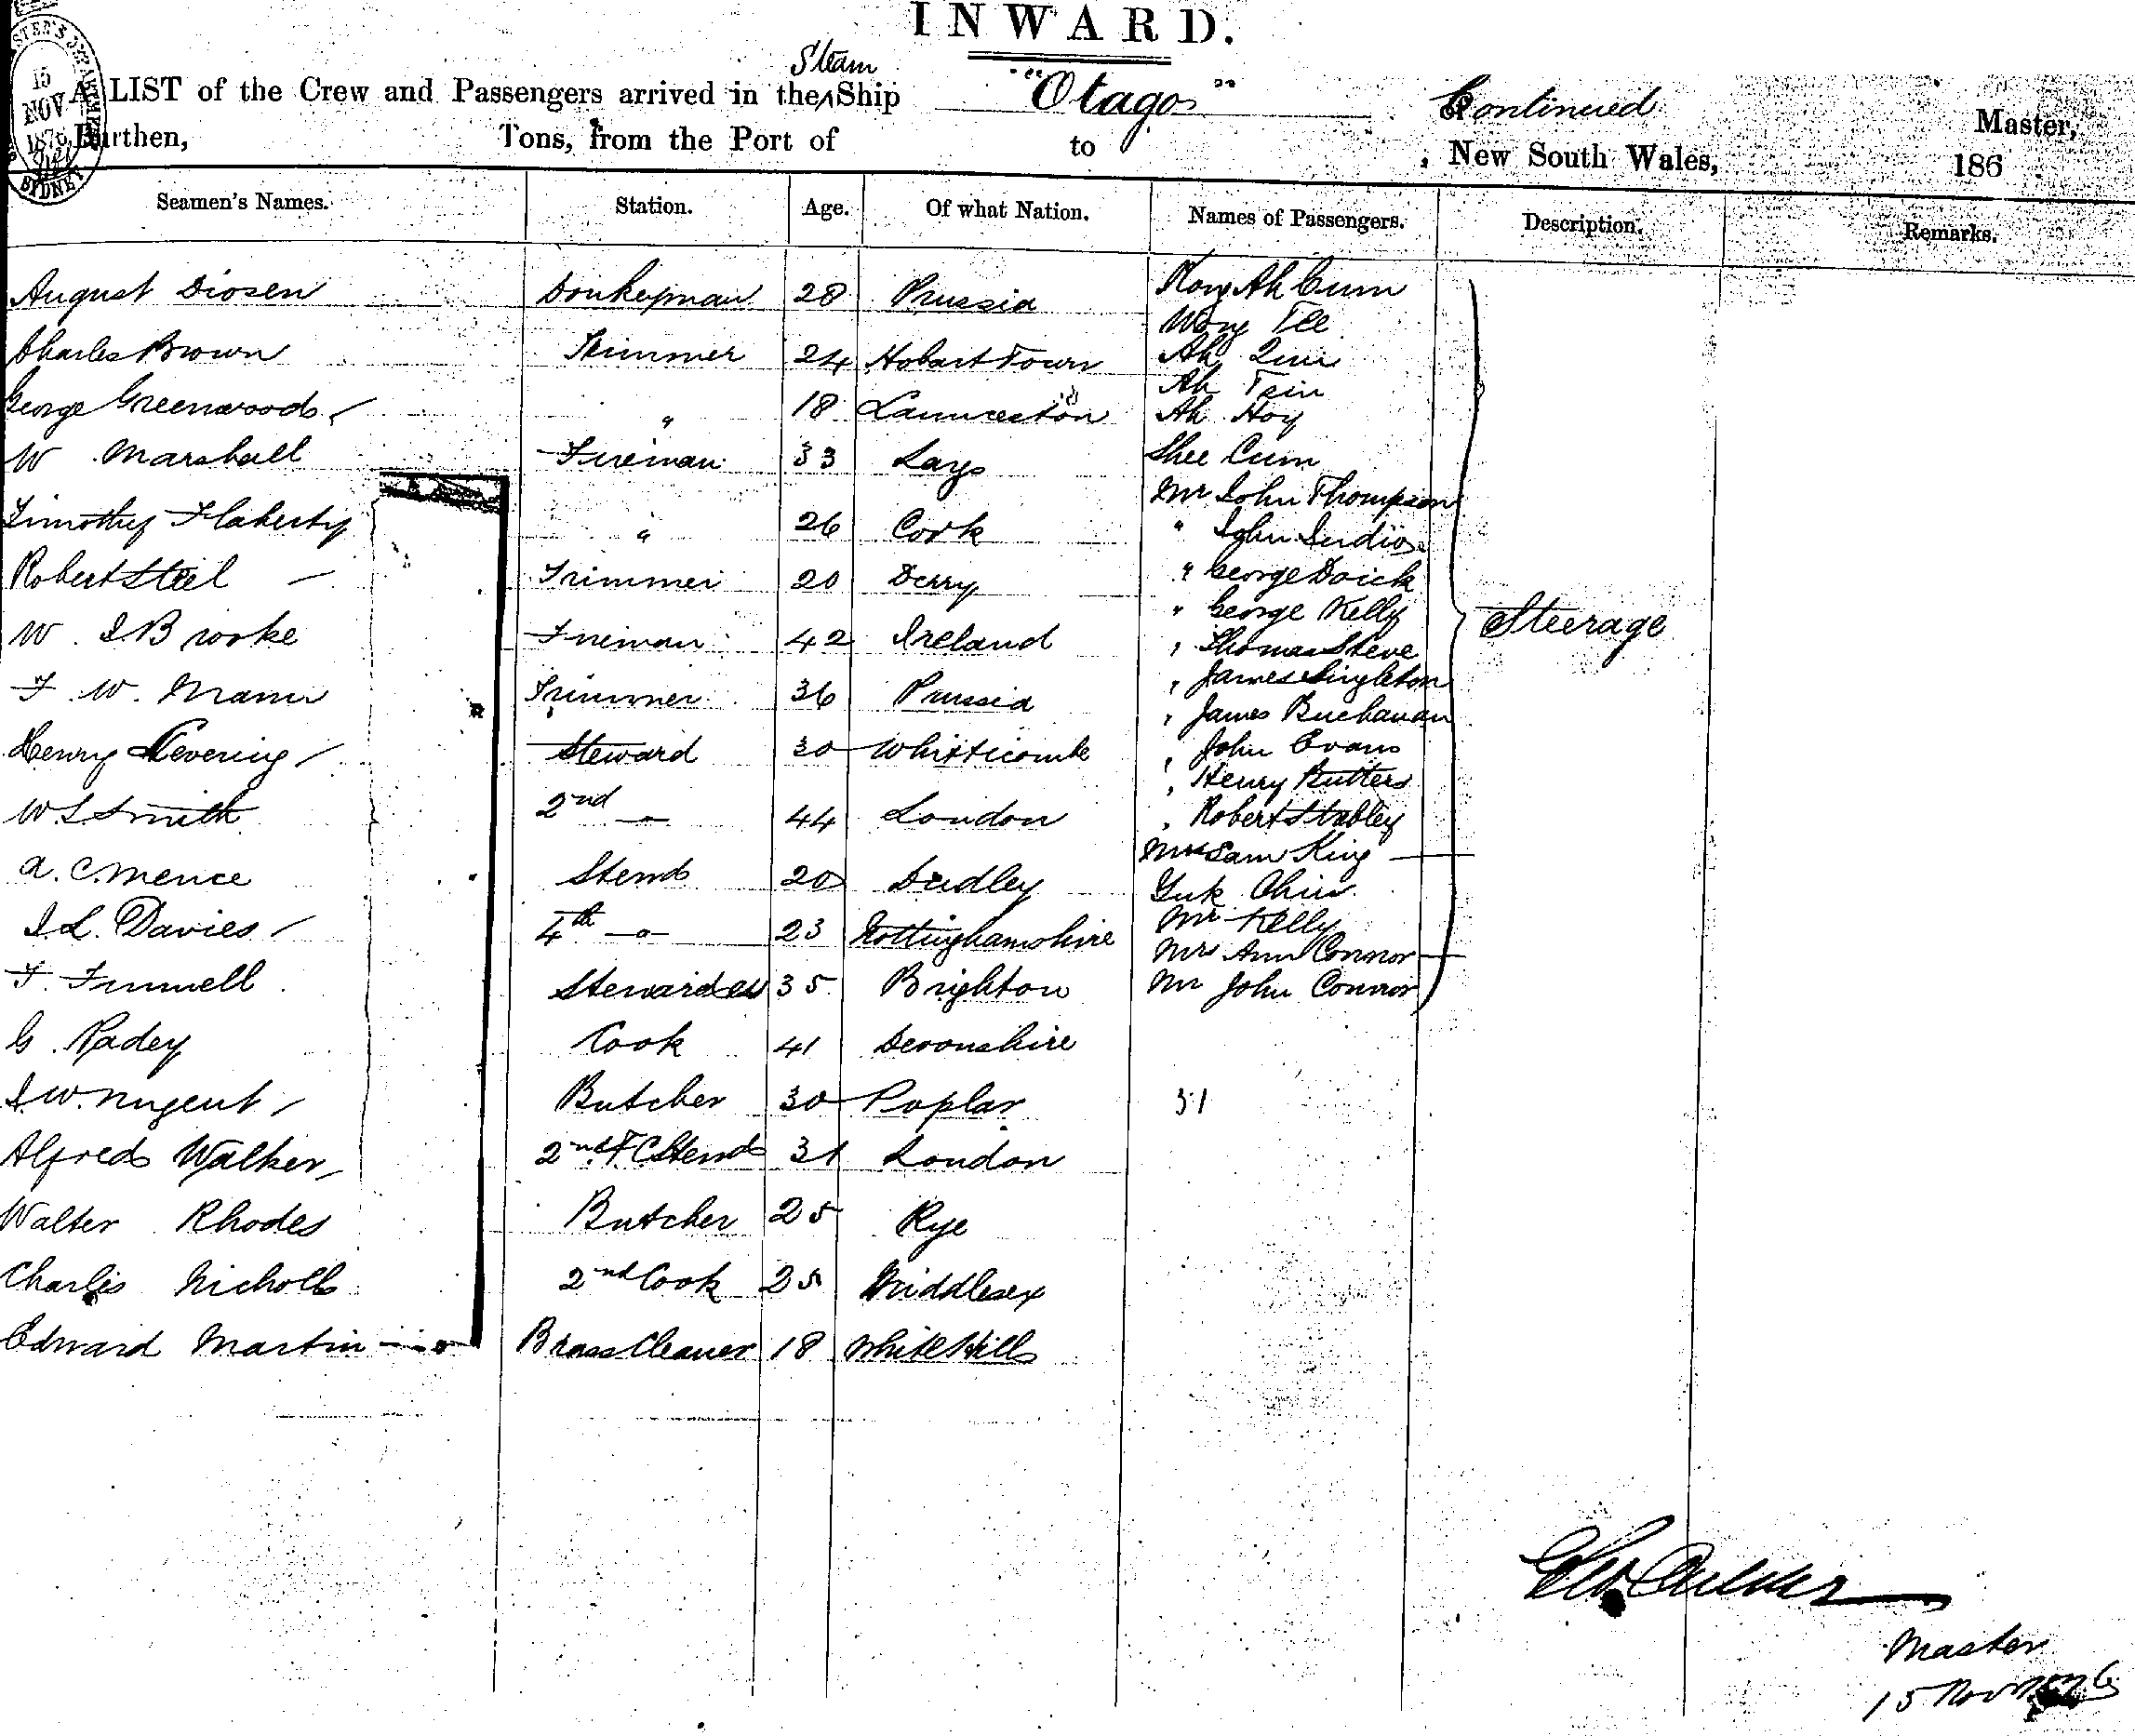 INWARD.
Steam
A LIST of the Crew and Passengers arrived in the Ship "Otago" Continued Master,
Burthen, Tons, from the Port of to , New South Wales, 186
15
NOV
1876
SYDNEY
Seamen's Names. Station. Age. Of what Nation. Names of Passengers. Description. Remarks.
August Diosen Donkeyman 28 Prussia
Charles Brown Trimmer 24 Hobart Town
George Greenwood " 18 Launceston
W Marshall Fireman 33 Largs
Timothy Flaherty " 26 Cork
Robert Steel Trimmer 20 Derry
W. J Brooke Fireman 42 Ireland
F. W. Mann Trimmer 36 Prussia
Henry Levering Steward 30 Whitticombe
W. S Smith 2nd " 44 London
A. C. Mence Stewd 20 Dudley
J. L. Davies 4th " 23 Nottinghamshire
F. Funnell Stewardess 35 Brighton
G. Radey Cook 41 Devonshire
J. W. Nugent Butcher 30 Poplar
Alfred Walker 2nd F. C Stewd 31 London
Walter Rhodes Butcher 25 Rye
Charles Nicholls 2nd Cook 25 Middlesex
Edward Martin Brass Cleaner 18 White Hills
Kong Ah Cum
Wong Tee
Ah Qui
Ah Tsin
Ah Hoy
Shee Cum
Mr John Thompson
" John
" George Doick
" George Kelly
" Thomas Steve
" James Singleton
" James Buchanan
" John Evans
" Henry Butters
" Robert Stabley
Mrs Sam King
Yuk Chin
Mr Kelly
Mrs Ann Connor
Mr John Connor
Steerage
31
Master
15 Nov 1876